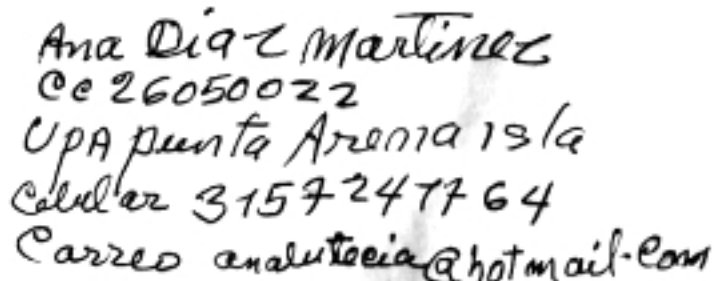 Ana Diaz Martinez
Cc 26050022
UPA punta Arena isla
Celular 3157247764
Correo analutecia@hotmail.com